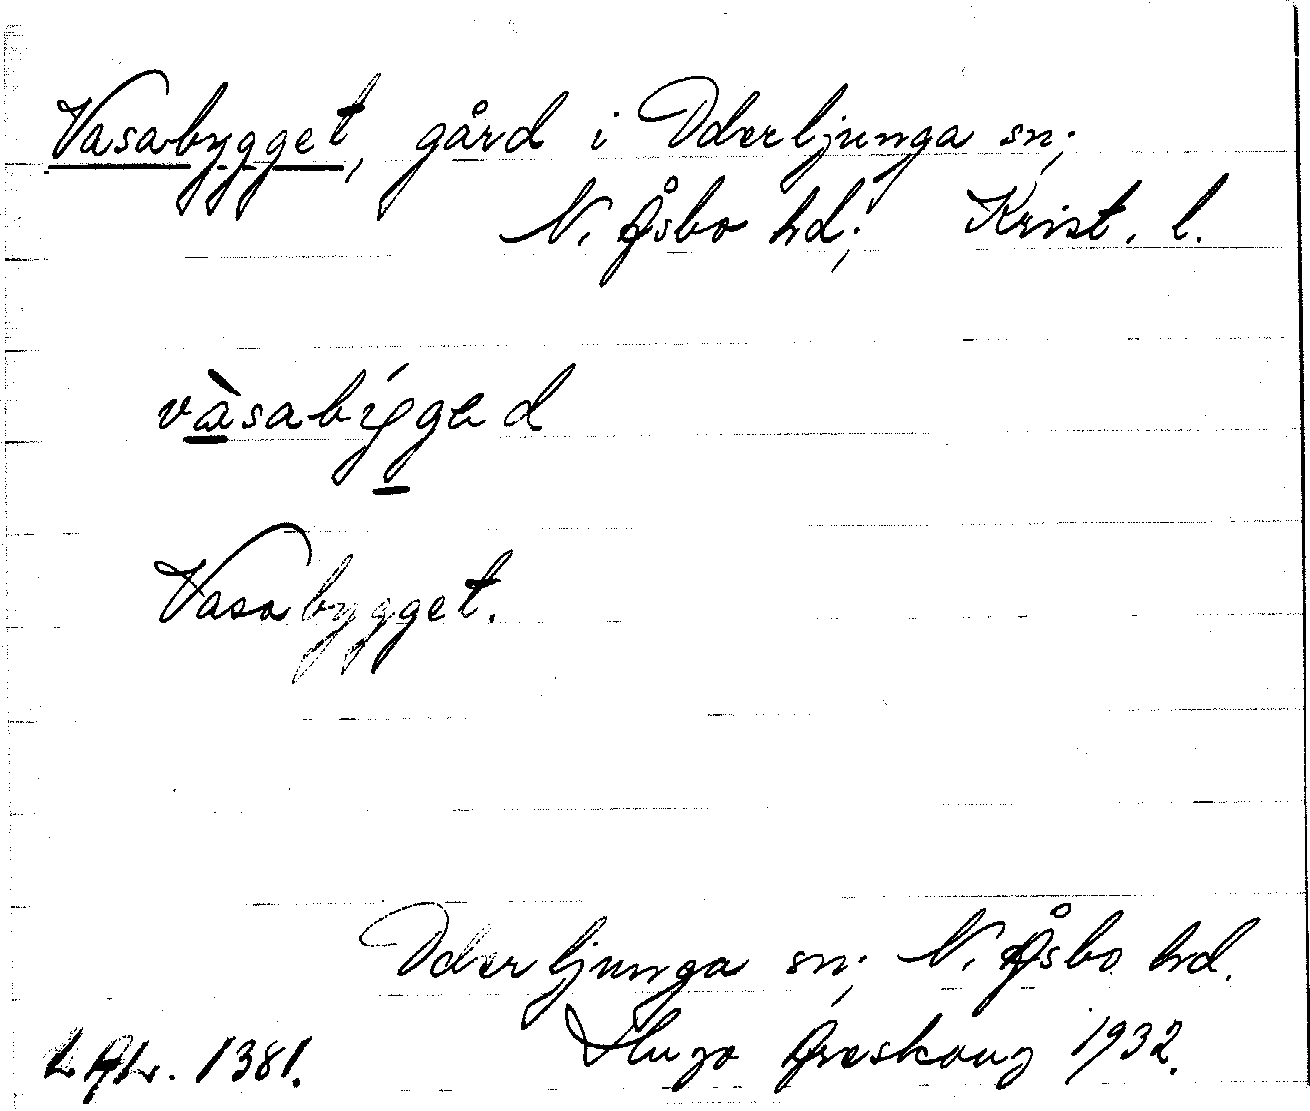 Vasabygget, gård i Oderljunga sn;
N. Åsbo hd; Krist. l.
vàsabýgged
Vasabygget.
Oderljunga sn; N. Åsbo hd.
Hugo Areskoug 1932.
1381.